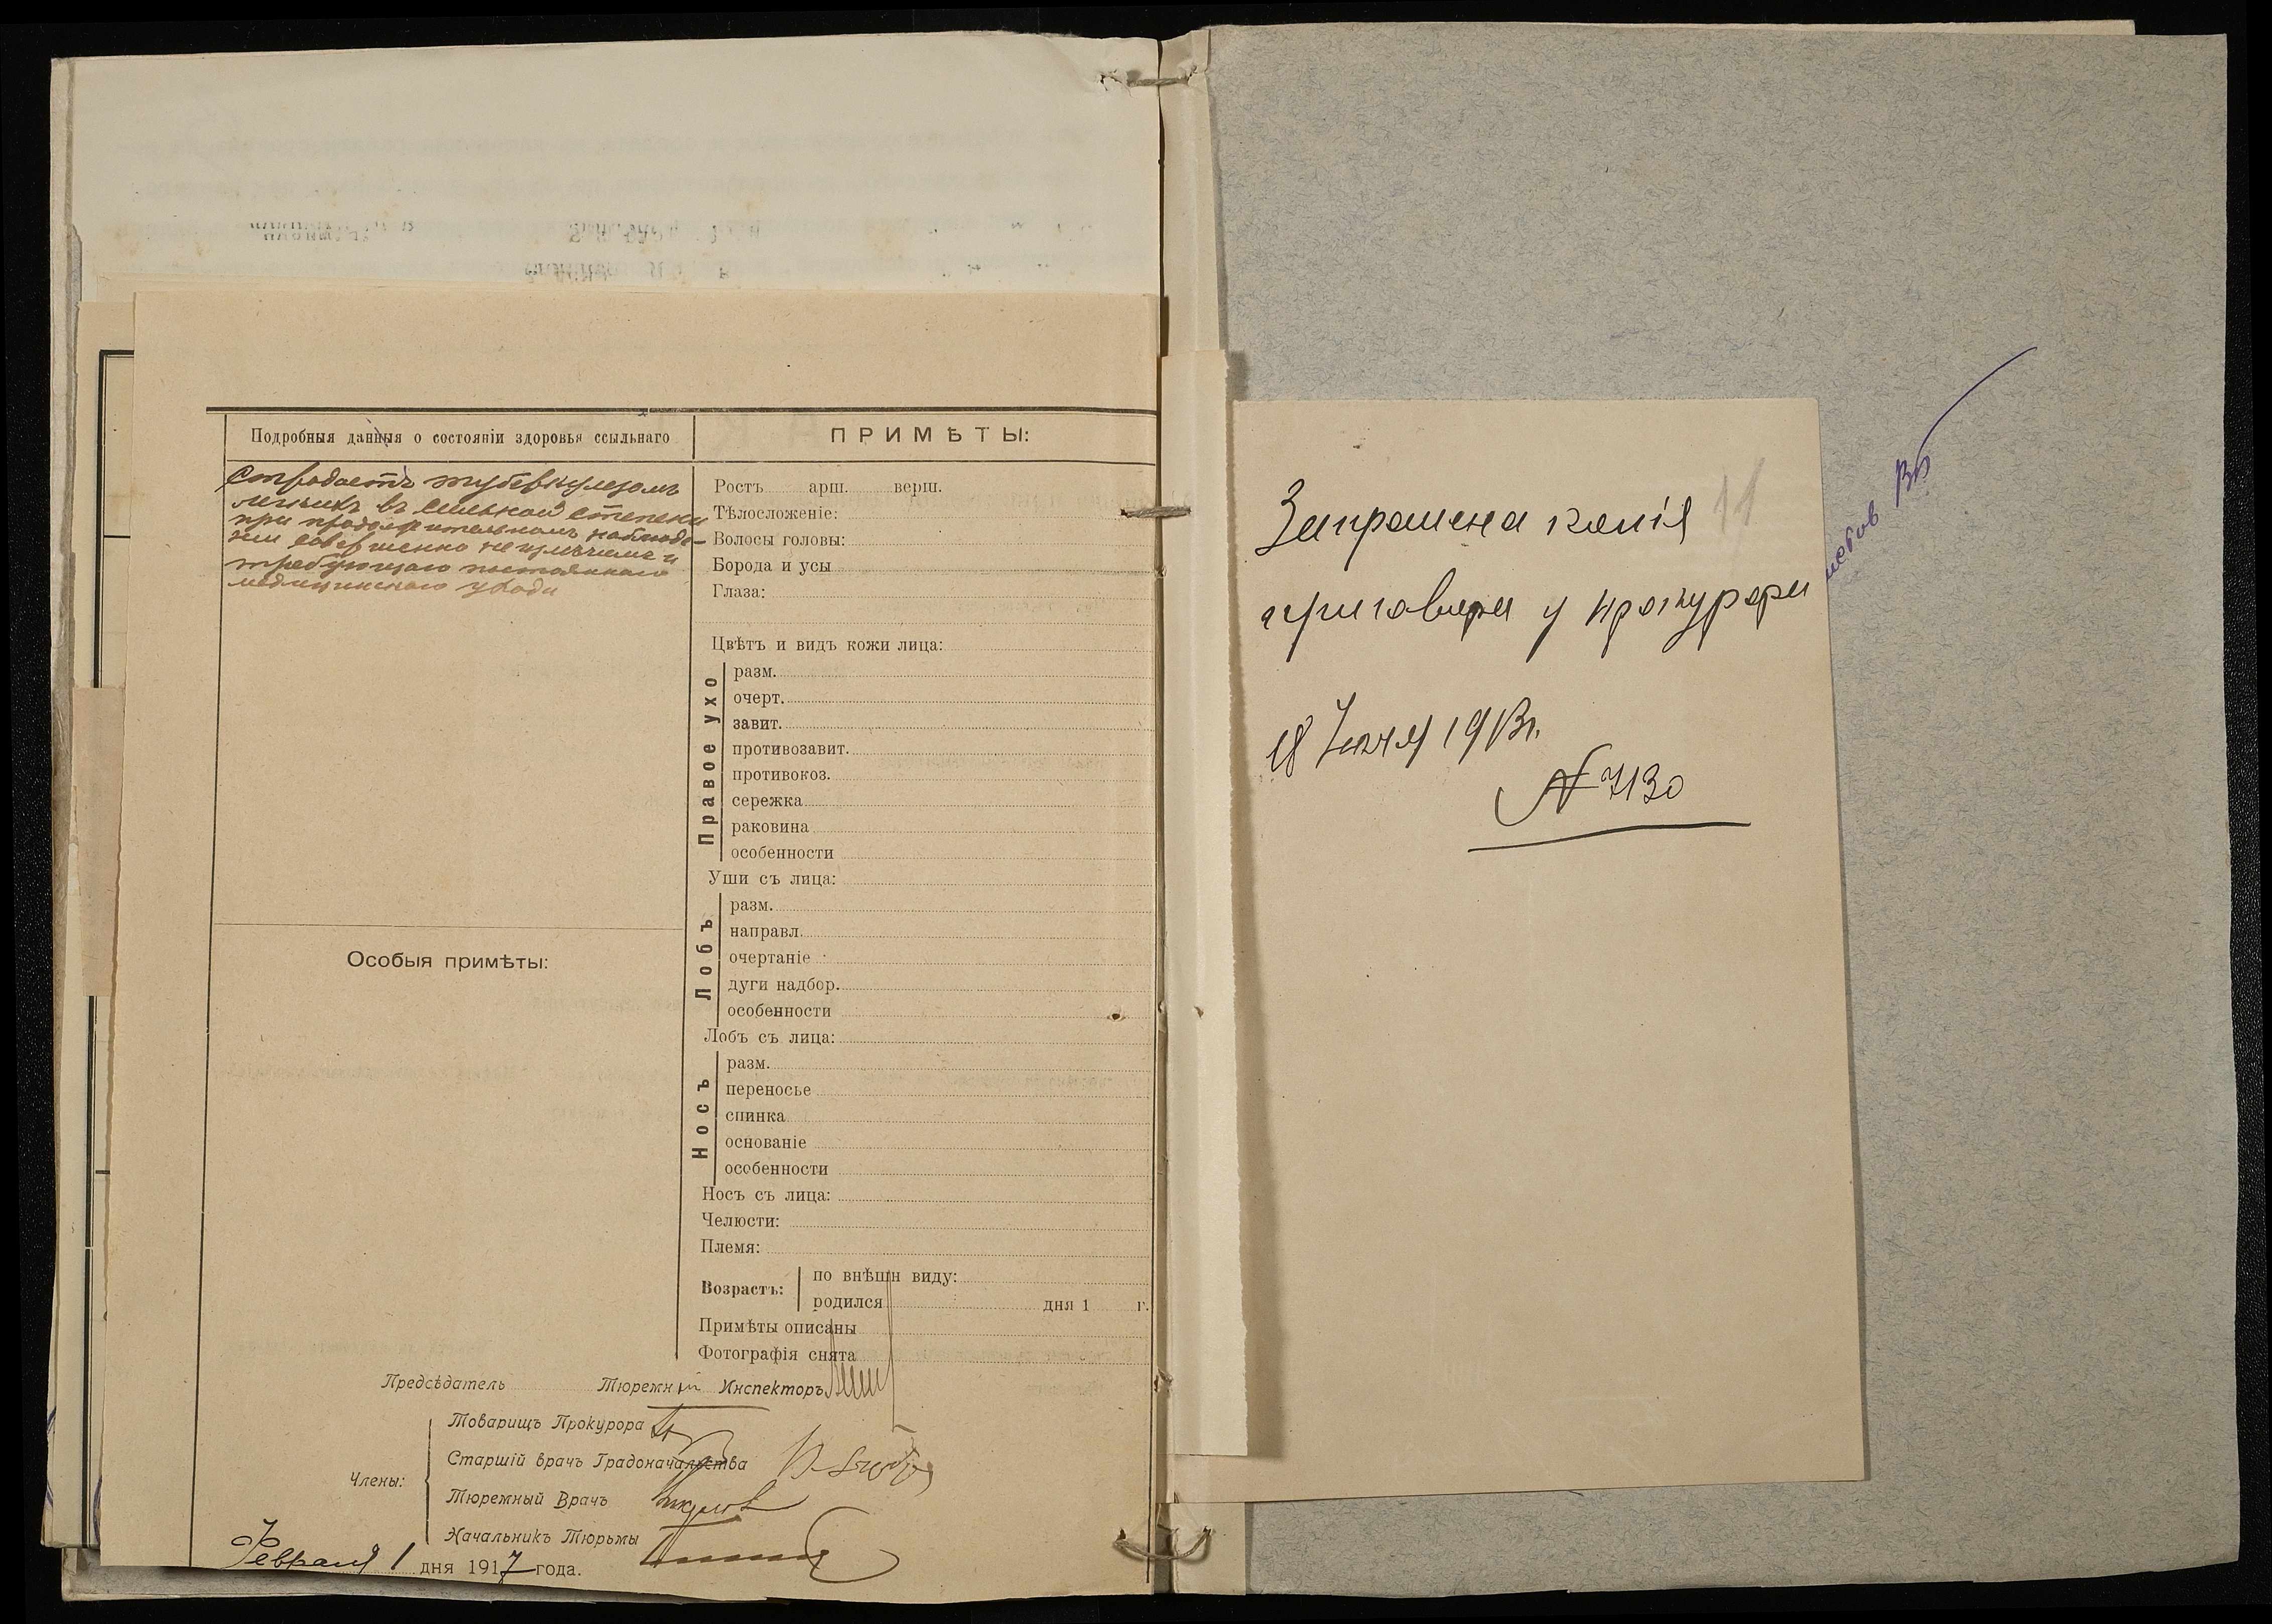 Подробныя данныя о состояніи здоровья ссыльнаго
Страдаетъ туберкулезомъ
легкихъ въ сильной степени
при продолжительномъ наблюде-
нии совершенно неизлѣчимъ и
требующаго постояннаго
медицинскаго ухода
Особыя примѣты:
ПРИМѢТЫ:
Ростъ арш. верш.
Тѣлосложеніе:
Волосы головы:
Борода и усы
Глаза:
Цвѣтъ и видъ кожи лица:
Правое ухо
разм.
очерт.
завит.
противозавит.
противокоз.
сережка
раковина
особенности
Уши съ лица:
Лобъ
разм.
направл.
очертаніе
дуги надбор.
особенности
Лобъ съ лица:
Носъ
разм.
переносье
спинка
основаніе
особенности
Носъ съ лица:
Челюсти:
Племя:
Возрастъ:
по внѣшн виду:
родился дня 1 г.
Примѣты описаны
Фотографія снята
Предсѣдатель Тюремный Инспекторъ
Члены:
Товарищъ Прокурора
Старшій врачъ Градоначальства
Тюремный Врачъ
Начальникъ Тюрьмы
Февраля 1 дня 1917 года.
11
Запрошена копія
приговора у прокурора
18 Іюня 1913г.
№ 7130